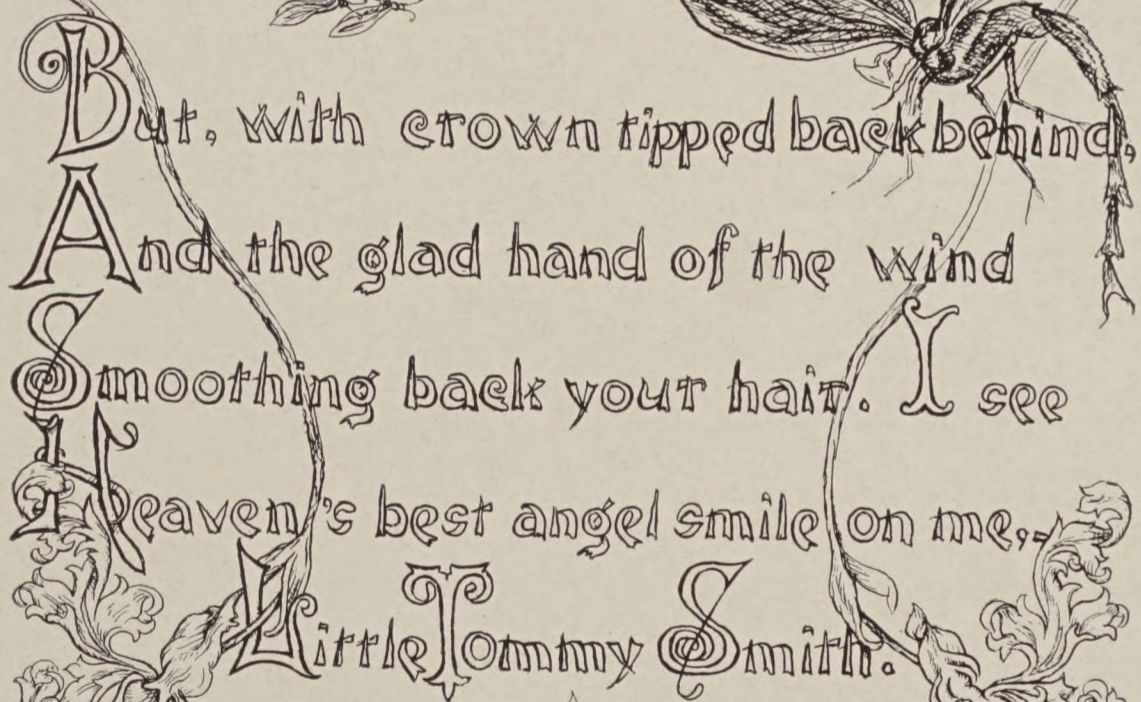 But, with crown tipped back behind,
And the glad hand of the wind
Smoothing back your hair. I see
Heaven's best angel smile on me,-
Little Tommy Smith.